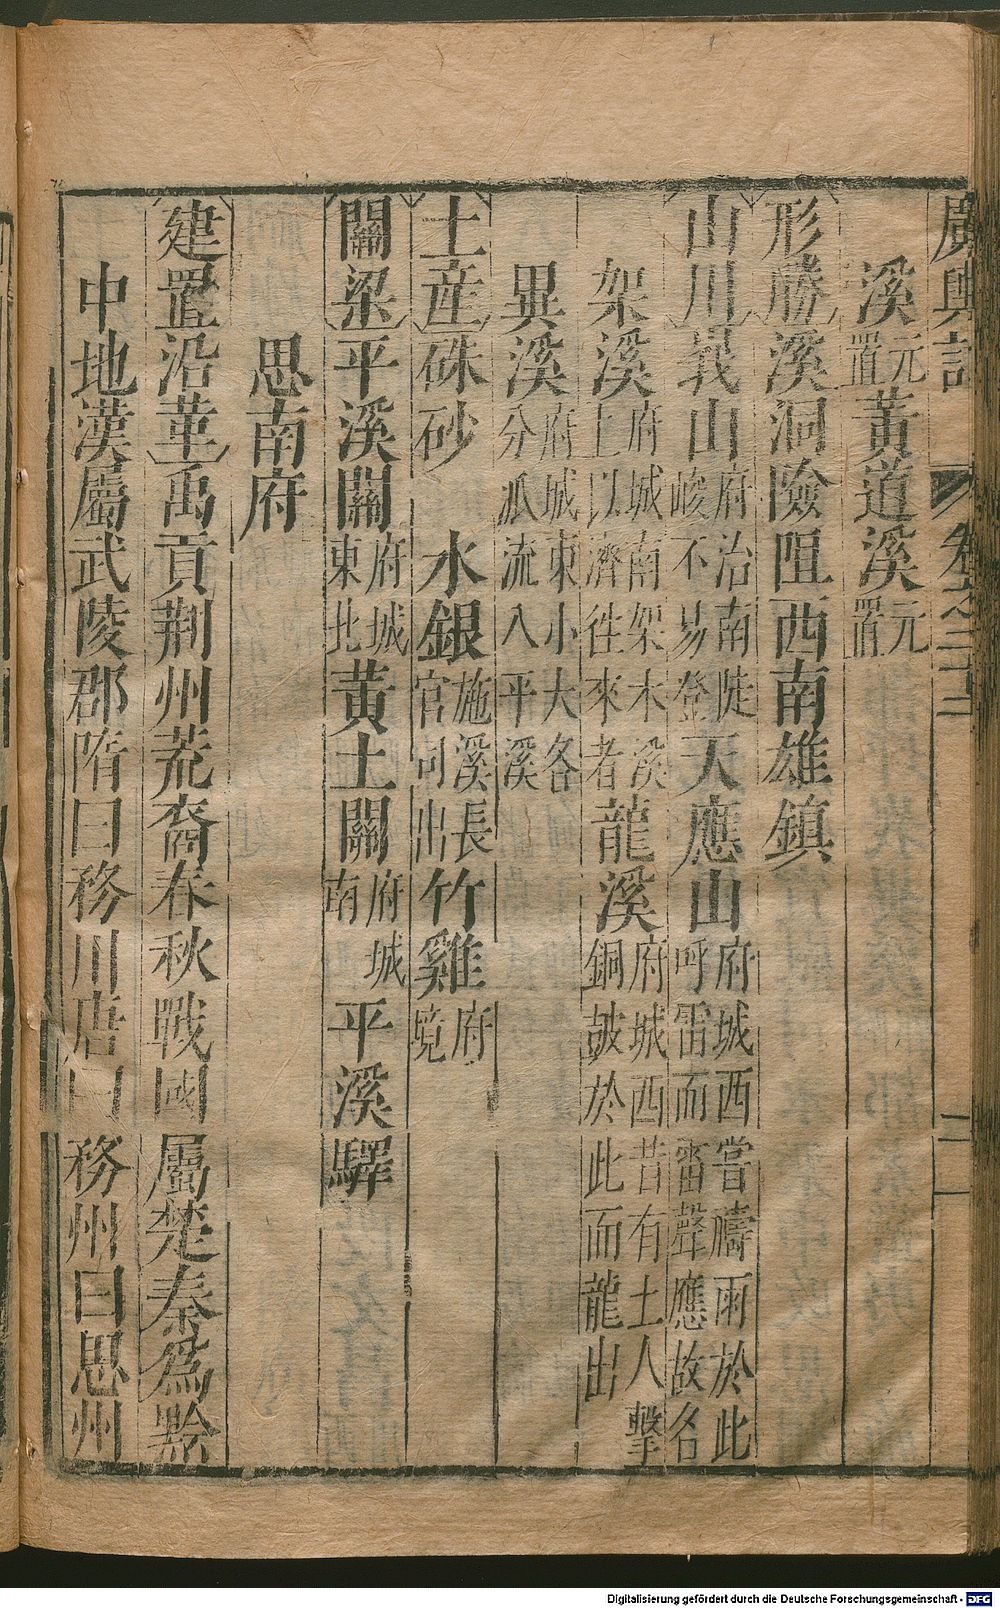 廣輿記 卷之二十三 二
溪元置黃道溪元置
形勝溪洞險阻西南雄鎮
山川峩山府治南陡峻不易登天應山府城西嘗禱雨於此呼雷而雷聲應故名
架溪府城南架木溪上以濟徃來者龍溪府城西昔有土人擊銅皷於此而龍出
異溪府城東小大各分派流入平溪
土產硃砂 水銀施溪長官司出竹雞府境
關梁平溪關府城東北黃土關府城南平溪驛
思南府
建置沿革禹貢荆州荒裔春秋戰國屬楚秦爲黔
中地漢屬武陵郡隋曰務川唐曰務州曰思州
Digitalisierung gefördert durch die Deutsche Forschungsgemeinschaft - DFG